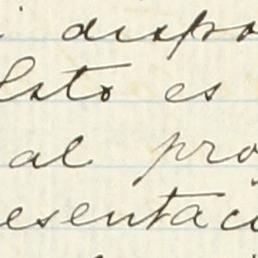 i dispo
Esto es
al pro
esentaci